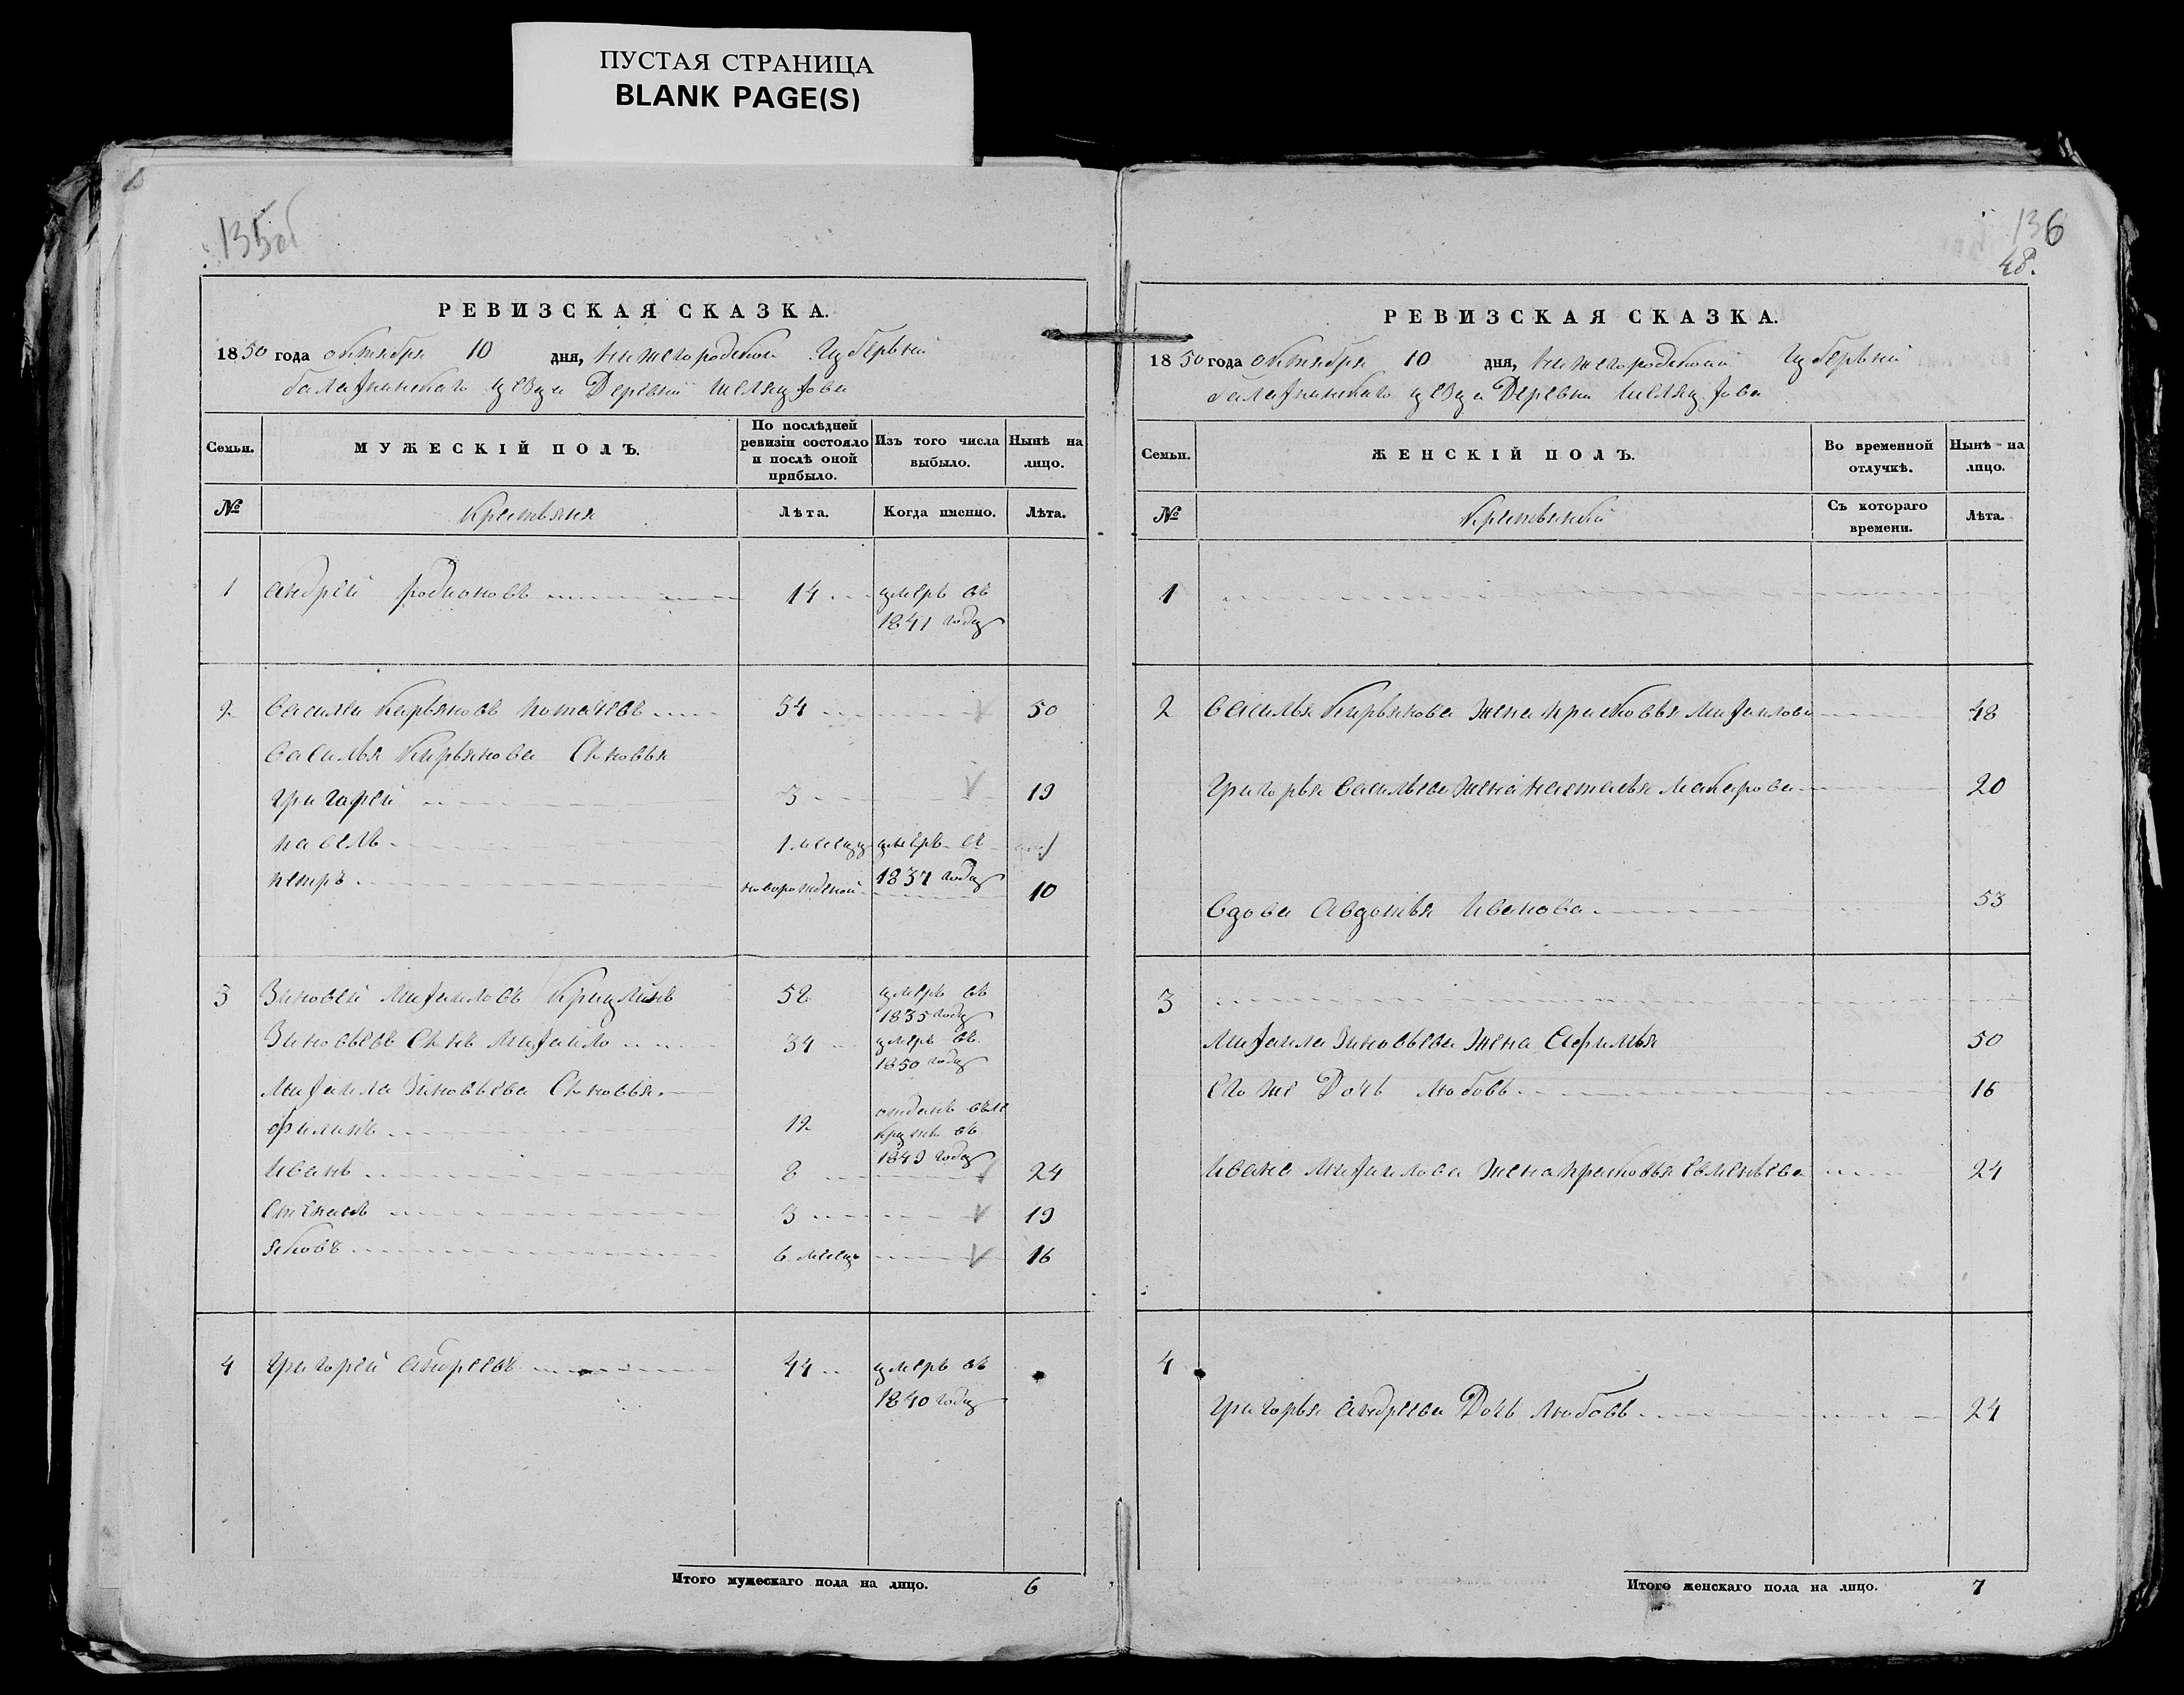 ПУСТАЯ СТРАНИЦА
BLANK PAGE(S)
135об
РЕВИЗСКАЯ СКАЗКА.
1850 года октября 10 дня, Нижегородской Губернии
балахнинскаго уезда Деревни
Семьи.
МУЖЕСКІЙ ПОЛЪ.
По послѣдней ревизіи состояло и послѣ оной прибыло.
Изъ того числа выбыло.
Нынѣ на лицо.
№
Крестьяня
Лѣта.
Когда именно.
Лѣта.
1 андрей родионовъ 14 умеръ въ
1841 году
2 василеи Кирьяновъ потачевъ 34 50
василья Кирьянова Сыновья
григорей 3 19
павелъ 1 месяц умеръ въ
1837 году
петръ новорожденой 10
3 Зиновей михаиловъ 52 умеръ въ
1835 году
Зиновьевъ Сынъ михаило 34 умеръ въ
1850 году
михаила Зиновьева Сыновья
филипъ 12 отданъ въ
1849 году
иванъ 8 24
степанъ 3 19
яковъ 6 месец 16
4 григорей андреевъ 44 умеръ въ
1840 году
Итого мужескаго пола на лицо. 6
136
48.
РЕВИЗСКАЯ СКАЗКА.
1850 года октября 10 дня, нижегородской Губернии
балахнинскаго уезда Деревни
Семьи.
ЖЕНСКІЙ ПОЛЪ.
Во временной отлучкѣ.
Нынѣ на лицо.
№
Съ котораго времени.
Лѣта.
1
2 василья Кирьянова жена прасковья михаилова 48
григорья васильева жена наталья макарова 20
вдова Авдотья иванова 53
3
михаила Зиновьева жена афимья 50
его же Дочь любовь 16
ивана михаилова жена прасковья семенева 24
4
григорья андреева Дочь любовь 24
Итого женскаго пола на лицо. 7